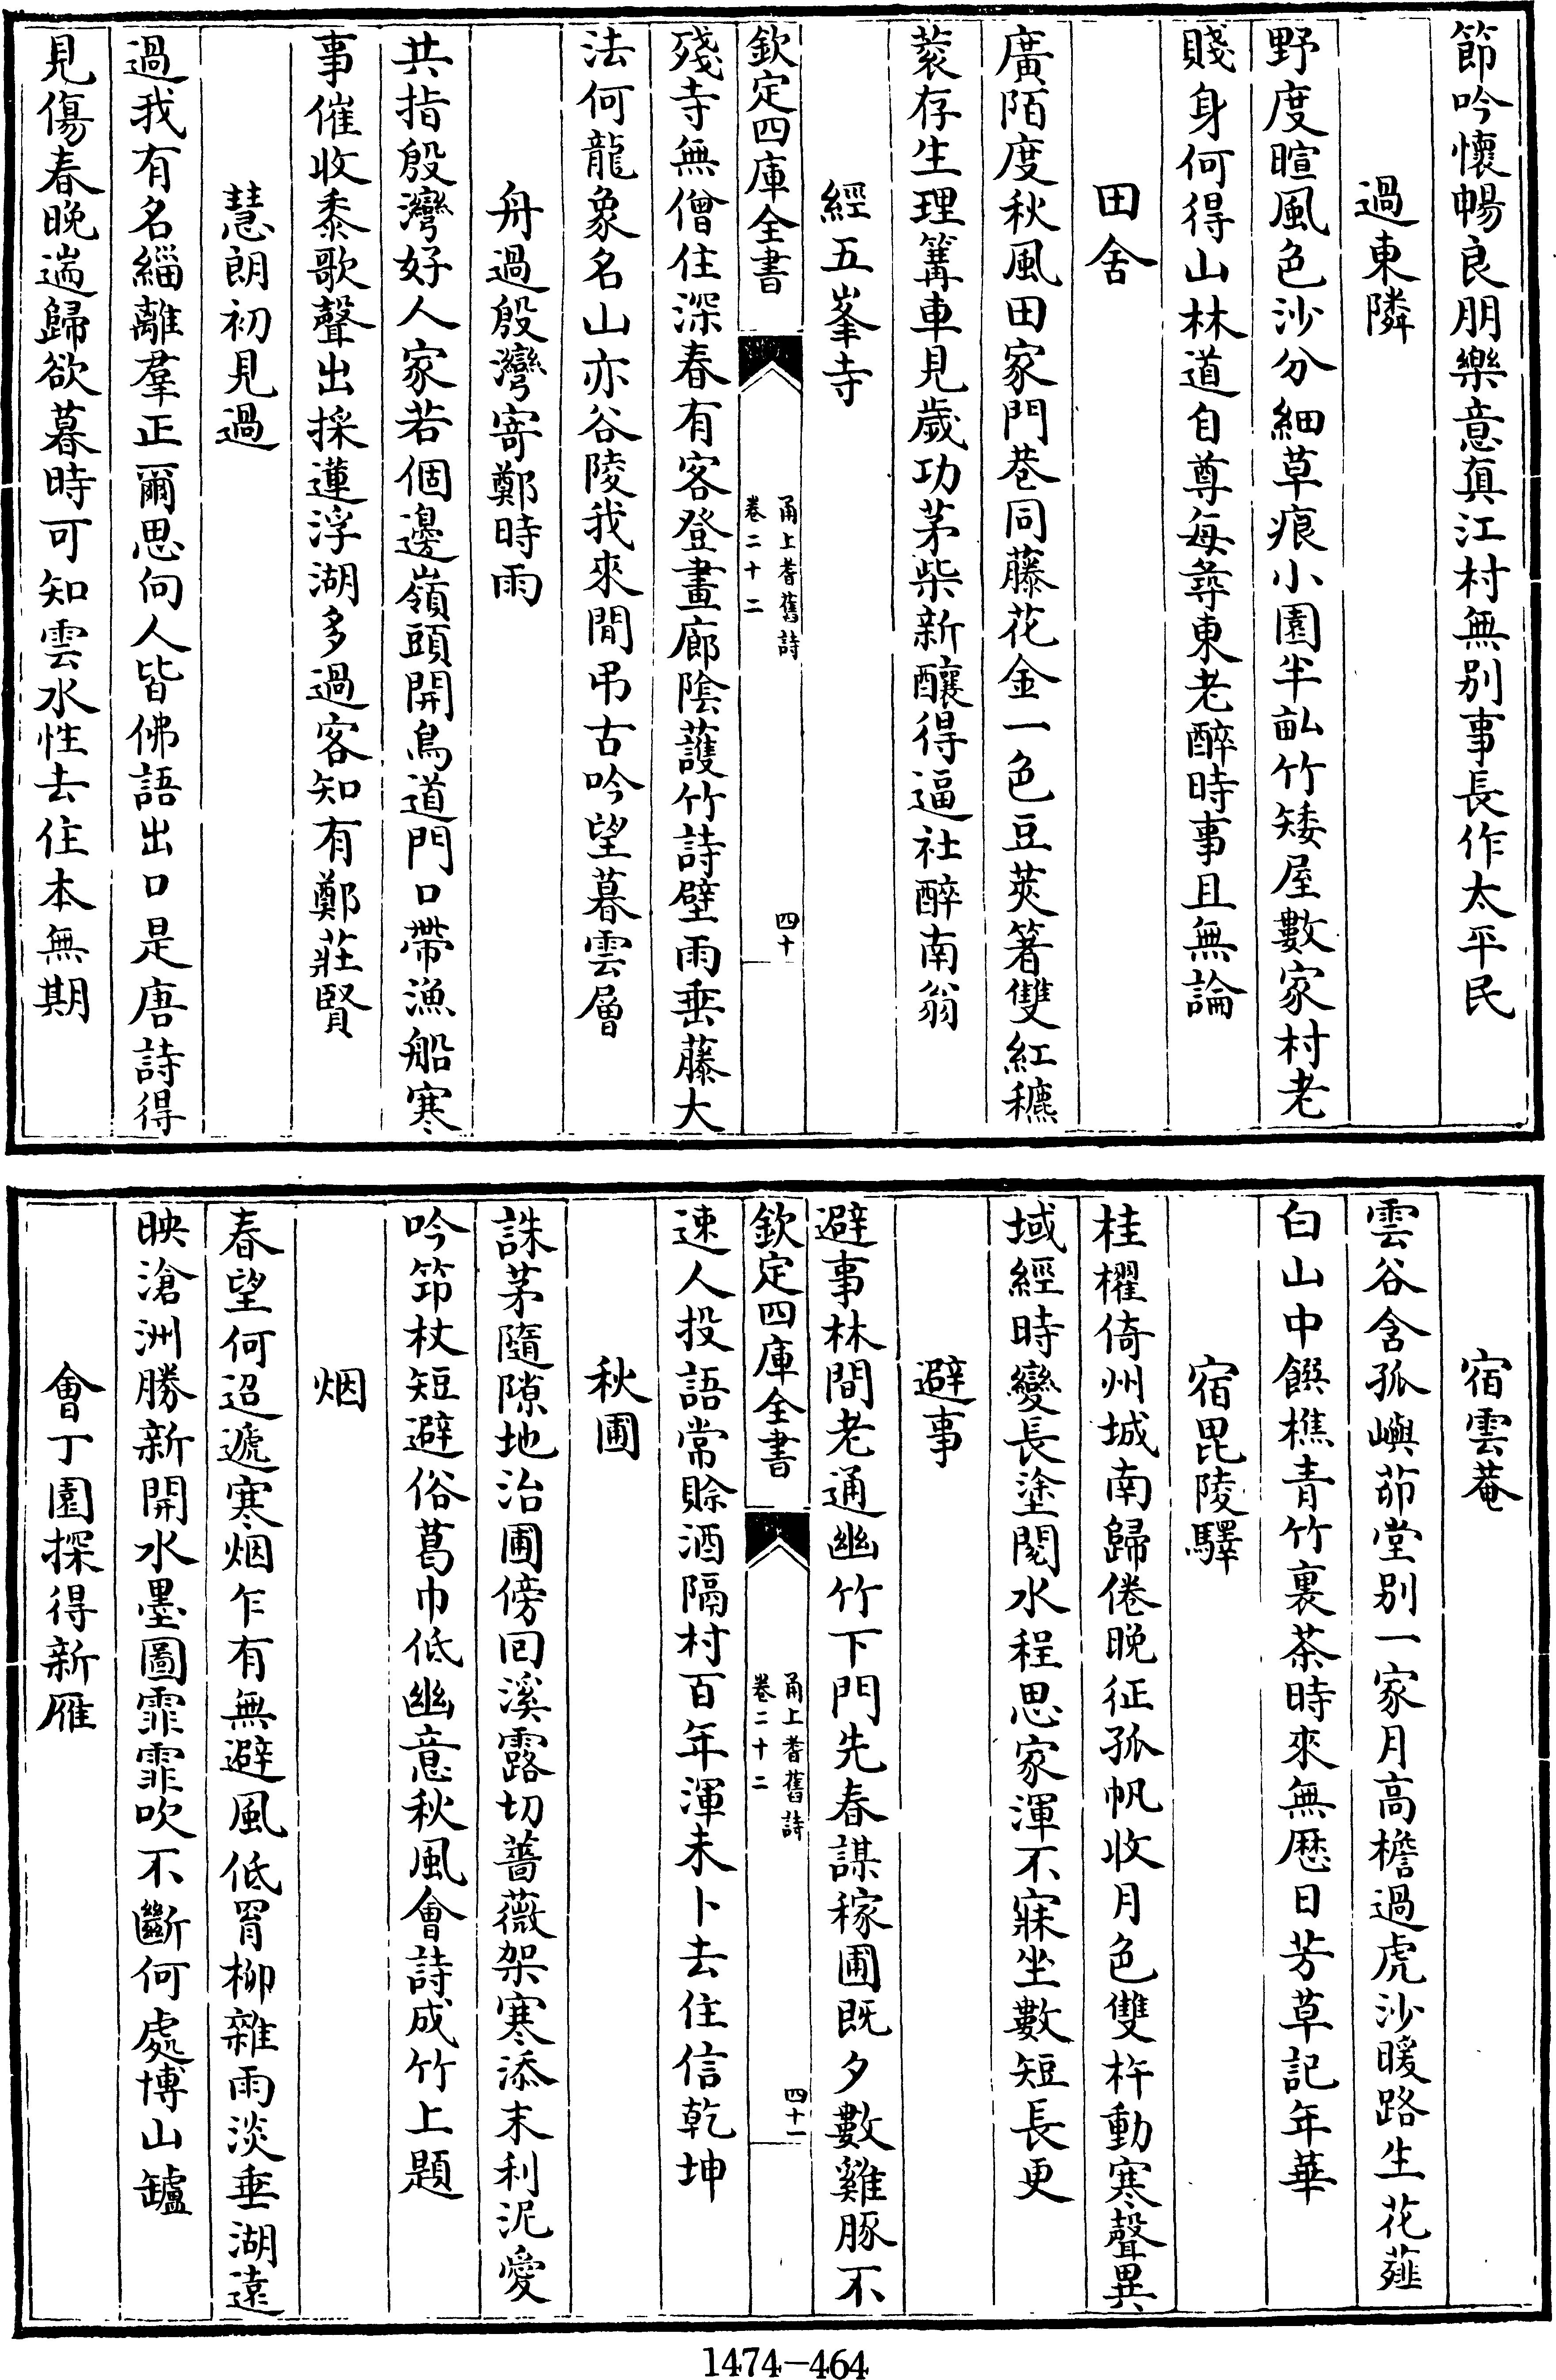 節吟懷暢良朋樂意真江村無别事長作太平民
過東隣
野度暄風色沙分細草痕小園半畝竹矮屋數家村老
賤身何得山林道自尊每尋東老醉時事且無論
田舍
廣陌度秋風田家門巷同藤花金一色豆莢箸雙紅穮
蓘存生理篝車見歲功茅柴新釀得逼社醉南翁
經五峯寺
欽定四庫全書
甬上耆舊詩
卷二十二
四十
殘寺無僧住深春有客登畫廊陰護竹詩壁雨垂藤大
法何龍象名山亦谷陵我來閒弔古吟望暮雲層
舟過殷灣寄鄭時雨
共指殷灣好人家若個邊嶺頭開鳥道門口帶漁船寒
事催收黍歌聲出採蓮浮湖多過客知有鄭莊賢
慧朗初見過
過我有名緇離羣正爾思向人皆佛語出口是唐詩得
見傷春晚遄歸欲暮時可知雲水性去住本無期
宿雲菴
雲谷含孤嶼茆堂别一家月高檐過虎沙暖路生花薤
白山中饌樵青竹裏茶時來無厯日芳草記年華
宿毘陵驛
桂櫂倚州城南歸倦晚征孤帆收月色雙杵動寒聲異
域經時變長塗閱水程思家渾不寐坐數短長更
避事
避事林間老通幽竹下門先春謀稼圃既夕數雞豚不
欽定四庫全書
甬上耆舊詩
卷二十二
四十一
速人投語常賒酒隔村百年渾未卜去住信乾坤
秋圃
誅茅隨隙地治圃傍回溪露切薔薇架寒添末利泥愛
吟笻杖短避俗葛巾低幽意秋風會詩成竹上題
烟
春望何迢遞寒烟乍有無避風低罥柳雜雨淡垂湖遠
映滄洲勝新開水墨圖霏霏吹不斷何處博山罏
會丁園探得新雁
1474-464